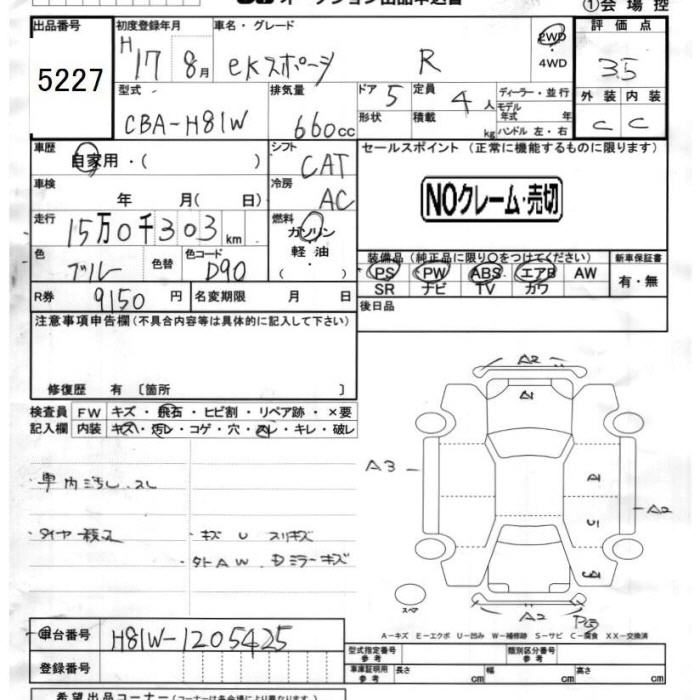 ①会場控
出品番号 初度登録年月 車名・グレード 評価点
5227 H17 8月 eKスポーツ R 2WD・4WD 3.5
型式 排気量 ドア 定員 ディーラー・並行 外装 内装
CBA-H81W 660cc 5 4人 モデル年式 年 C C
形状 積載 kg ハンドル 左・右
車歴 シフト セールスポイント (正常に機能するものに限ります)
自家用・( ) CAT
車検 冷房
年 月( 日) AC NOクレーム・売切
走行 燃料
15万0千303km ガソリン
軽油
( )
色 色替 色コード 装備品 (純正品に限り○をつけてください) 新車保証書
ブルー D90 PS PW ABS エアB AW 有・無
SR ナビ TV カワ
R券 9150円 名変期限 月 日 後日品
注意事項申告欄(不具合内容等は具体的に記入して下さい)
修復歴 有 [箇所 ]
検査員 FW キズ・飛石・ヒビ割・リペア跡・×要
記入欄 内装 キズ・汚レ・コゲ・穴・スレ・キレ・破レ
A2
A1
A3
A2
A2
スペア
車内汚レ、スレ
キズ U スリキズ
A-キズ E-エクボ U-凹み W-補修跡 S-サビ C-腐食 XX-交換済
車台番号 H81W-1205425
登録番号
型式指定番号 参考 類別区分番号 参考
車庫証明用 参考 長さ cm 幅 cm 高さ cm
希望出品コーナー